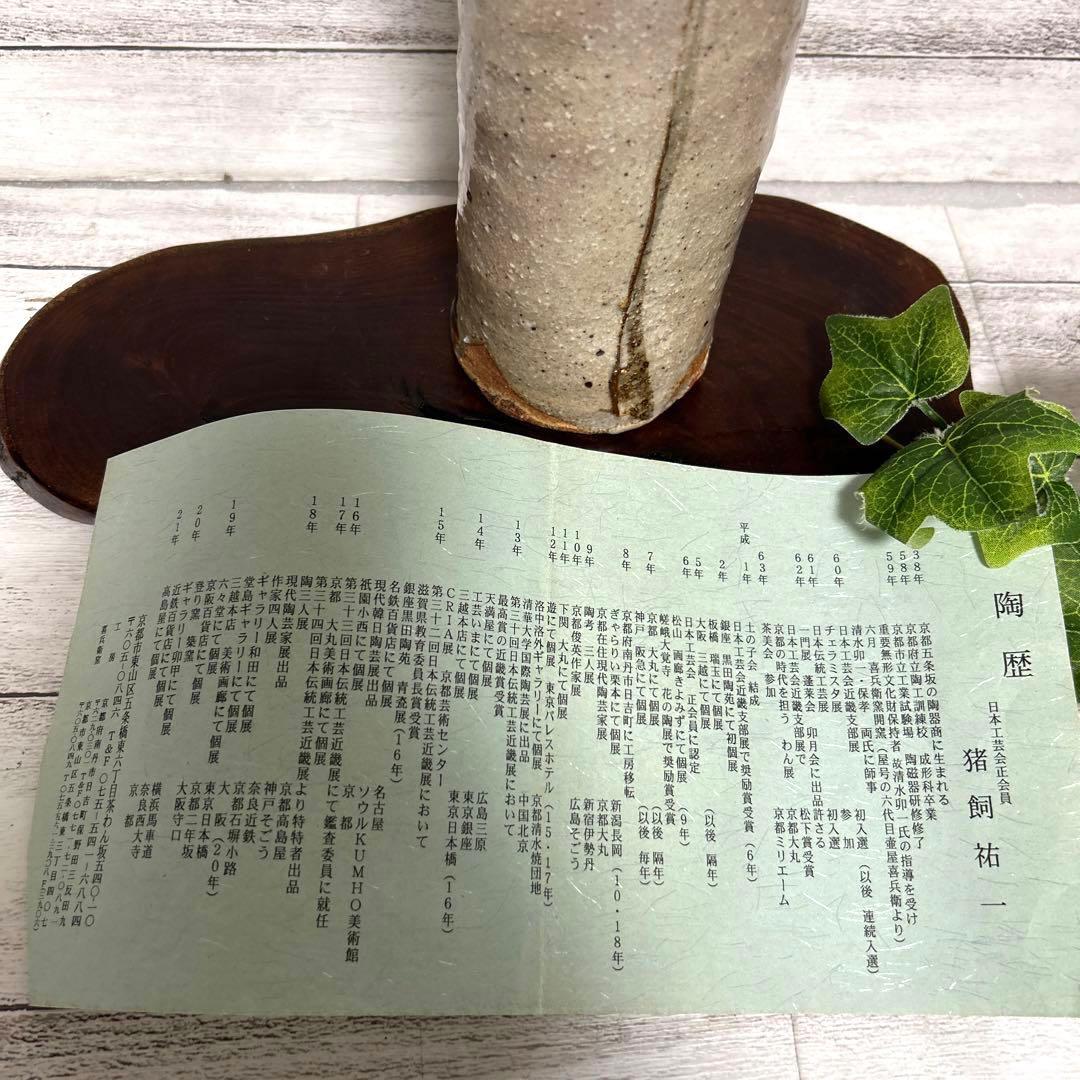 陶歴
日本工芸会正会員
猪飼祐一
38年 京都五条坂の陶器商に生まれる
58年 京都府立陶工訓練校 成形科卒業
59年 京都市立工業試験場 陶磁器研修修了
重要無形文化財保持者 故清水卯一氏の指導を受け
60年 六月 喜兵衛窯開窯(屋号の六代目壷屋喜兵衛より)
清水卯一・保孝 両氏に師事
日本工芸会近畿支部展 初入選(以後 連続入選)
チェラミスタ展 参加
61年 日本伝統工芸展 初入選
一門展 蓬莱会 卯月会に出品許さる
62年 日本工芸会近畿支部展で 松下賞受賞
京都の時代を担う わん展 京都大丸
63年 茶美会 参加 京都ミリエーム
平成
土の子会 結成
1年 日本工芸会近畿支部展で奨励賞受賞(6年)
銀座 黒田陶苑にて初個展
2年 板橋 瑞玉にて個展(以後 隔年)
5年 大阪 三越にて個展
6年 日本工芸会 正会員に認定
松山 画廊きよみずにて個展(9年)
嵯峨大覚寺 花の陶展で奨励賞受賞
7年 京都 大丸にて個展(以後 隔年)
神戸 阪急にて個展(以後 毎年)
8年 京都府南丹市日吉町に工房移転
ぎゃらりい栗本にて個展 新潟長岡(10・18年)
京都在住現代陶芸家展 京都大丸
9年 陶考 三人展 新宿伊勢丹
10年 京都俊英作家展 広島そごう
11年 下関 大丸にて個展
12年 遊にて個展 東京パレスホテル(15・17年)
洛中洛外ギャラリーにて個展 京都清水焼団地
清華大学国際陶芸展に出品 中国北京
13年 第三十回日本伝統工芸近畿展において
最高賞の近畿賞受賞
天満屋にて個展 広島三原
14年 工芸いま展にて個展 東京銀座
三越本店にて個展 東京日本橋(16年)
CRIA展 京都芸術センター
15年 第三十二回日本伝統工芸近畿展において
滋賀県教育委員長賞受賞
銀座黒田陶苑 青瓷展(16年)
名鉄百貨店にて個展 名古屋
現代韓日陶芸展出品 ソウルKUMHO美術館
16年 祇園小西にて個展 京都
第三十三回日本伝統工芸近畿展にて鑑査委員に就任
17年 京都 大丸美術画廊にて個展
第三十四回日本伝統工芸近畿展より特待者出品
18年 陶三人展 京都高島屋
現代陶芸家展出品 神戸そごう
作家四人展 奈良近鉄
ギャラリー和田にて個展 京都石塀小路
堂島ギャラリーにて個展 大阪(20年)
19年 三越本店 美術画廊にて個展 東京日本橋
六々堂にて個展 京都二年坂
京阪百貨店にて個展 大阪守口
20年 登り窯 築窯
ギャラリー卯甲にて個展 横浜馬車道
21年 近鉄百貨店にて個展 奈良西大寺
高島屋にて個展 京都
京都市東山区五条橋東六丁目茶わん坂五四〇-一〇
〒605-0846 T&F075-541-6884
工房
喜兵衛窯